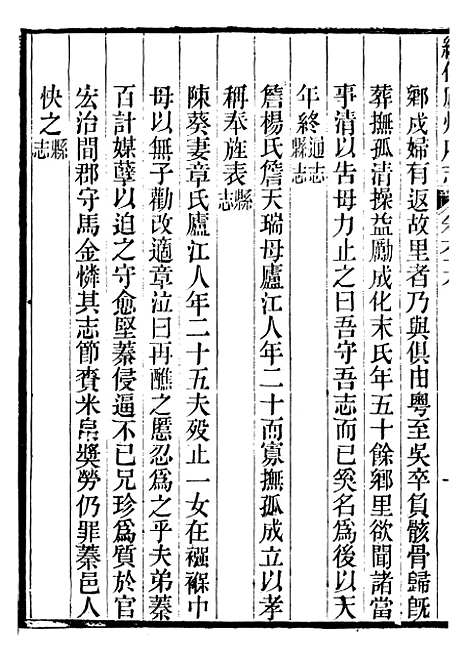 鄉戍婦有返故里者乃與俱由粵至吳卒負骸骨歸旣
葬撫孤清操益勵成化末氏年五十餘鄉里欲聞諸當
事清以告母力止之曰吾守吾志而已奚名爲後以天
年終通志縣志
詹楊氏詹天瑞母廬江人年二十而寡撫孤成立以孝
稱奉旌表縣志
陳葵妻章氏廬江人年二十五夫歿止一女在襁褓中
母以無子勸改適章泣曰再醮之慝忍爲之乎夫弟蓁
百計媒孽以迫之守愈堅蓁侵逼不已兄珍爲質於官
宏治間郡守馬金憐其志節賚米帛獎勞仍罪蓁邑人
快之縣志